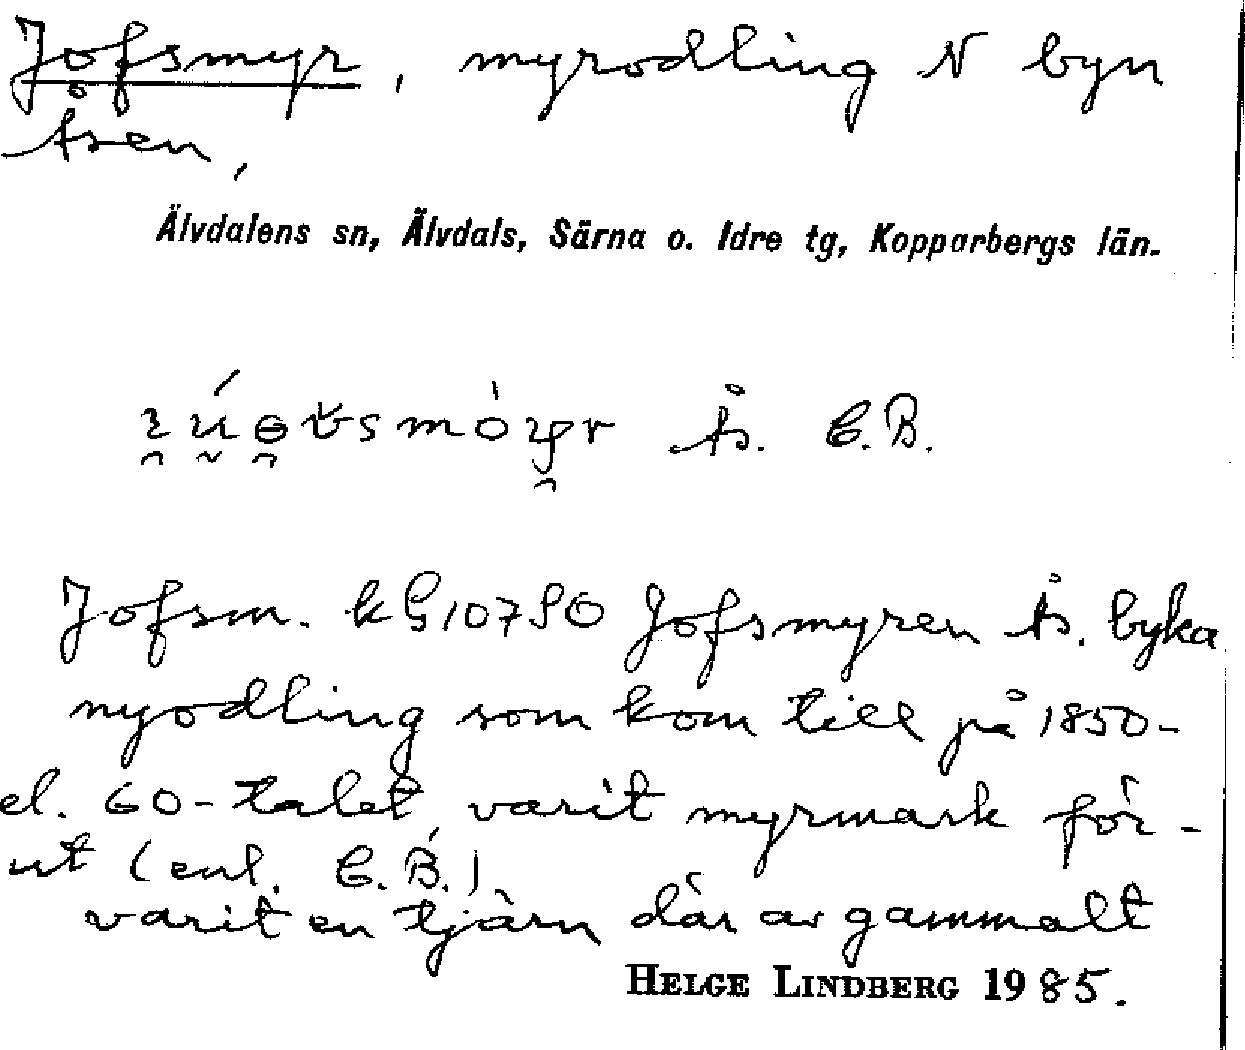 Jofsmyr, myrodling N byn
Åsen,
Älvdalens sn, Älvdals, Särna o. Idre tg, Kopparbergs län.
Ås. E.B.
Jofsm. kG10750 Jofsmyren Ås. byka
nyodling som kom till på 1850-
el. 60-talet, varit myrmark för-
ut (enl. E.B.).
varit en tjärn där av gammalt
HELGE LINDBERG 1985.